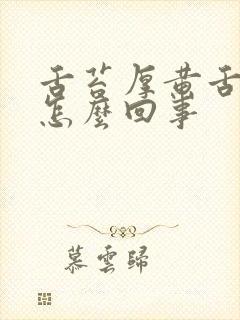 舌苔厚黄舌
怎麼回事
慕雲歸